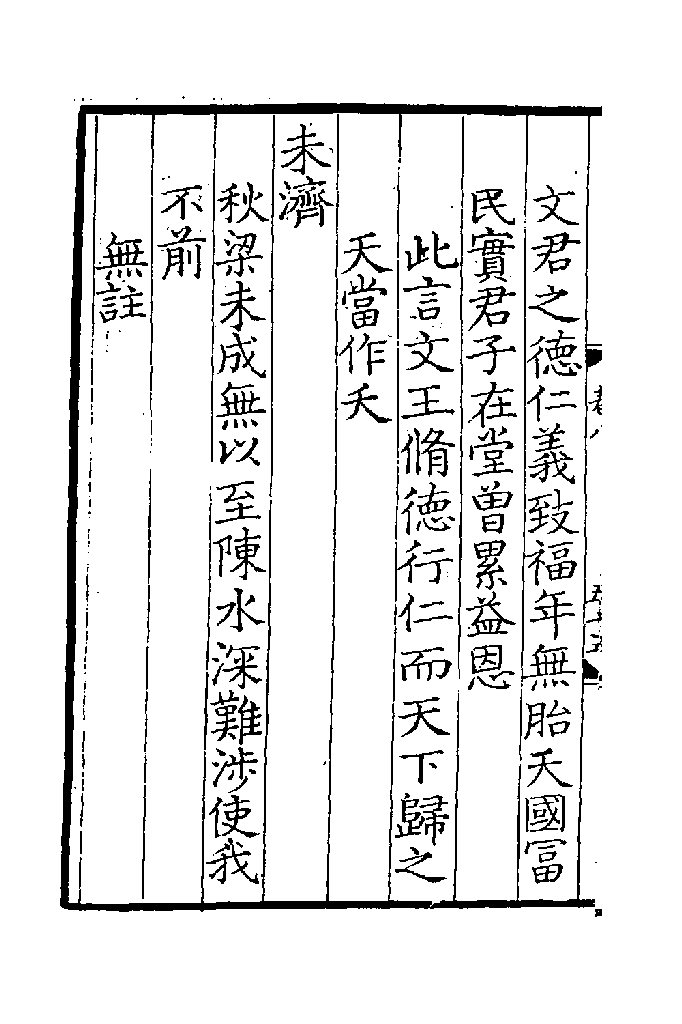 文君之德仁義致福年無胎天國冨
民實君子在堂曽累益恩
此言文王脩德行仁而天下歸之
天當作夭
未濟
秋梁未成無以至陳水深難渉使我
不前
無註